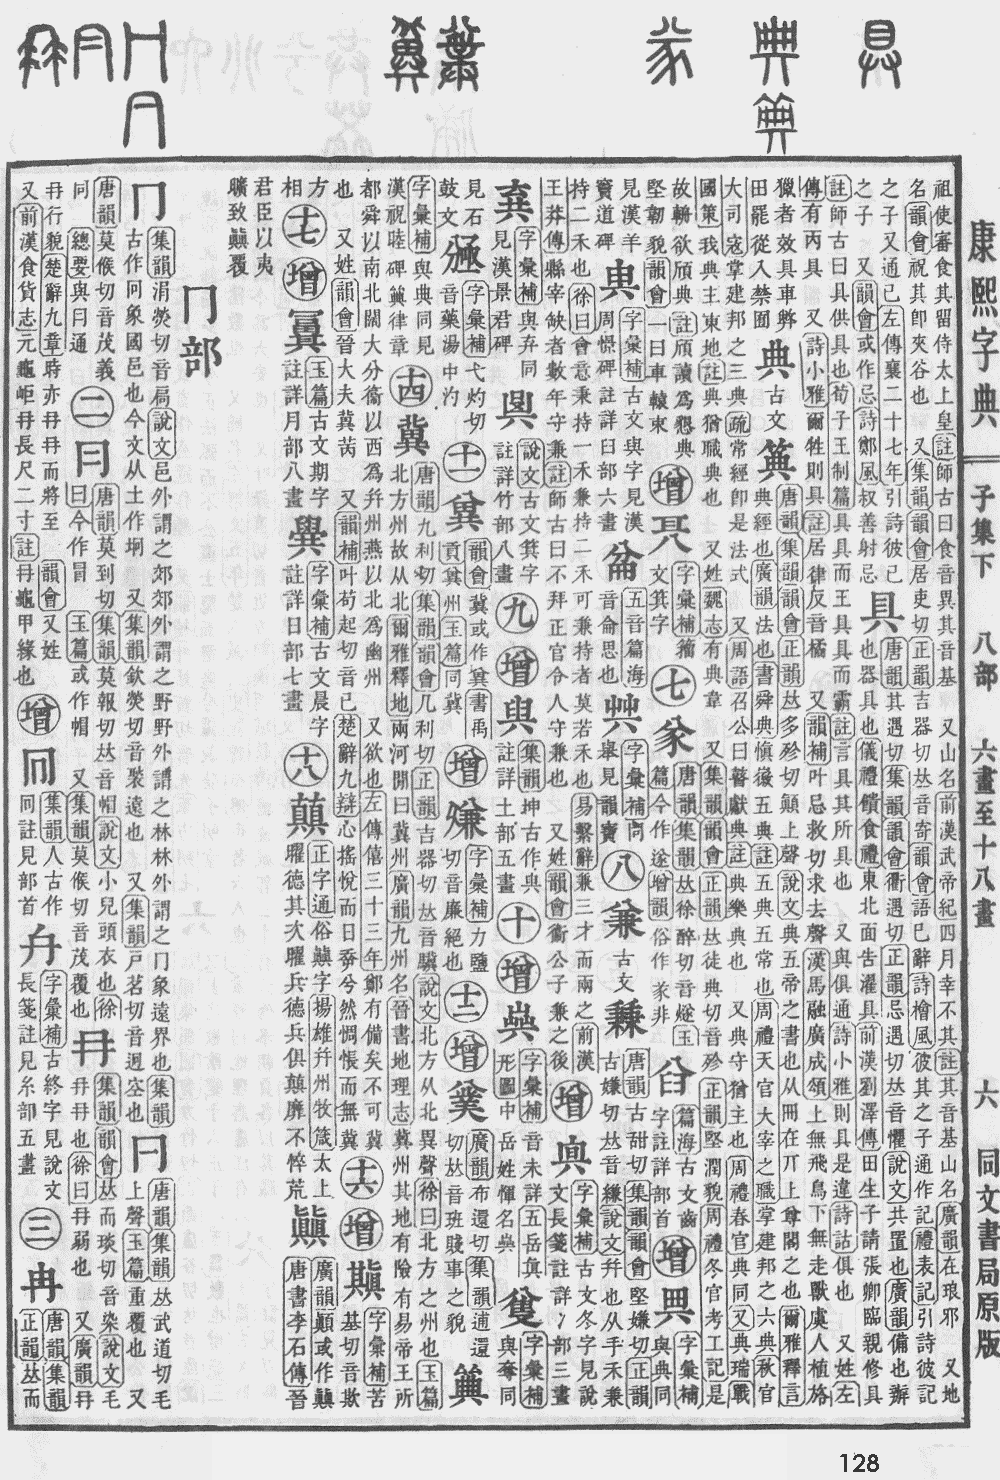 康熙字典 子集下 八部 六畫至十八畫 六 同文書局原版
祖使審食其留侍太上皇註師古曰食音異其音基 又山名前漢武帝紀四月幸不其註其音基山名廣韻在琅邪 又地
名韻會祝其卽夾谷也 又集韻韻會居吏切正韻吉器切𠀤音寄韻會語巳辭詩檜風彼其之子通作記禮表記引詩彼記
之子又通已左傳襄二十七年引詩彼已
之子 又韻會或作忌詩鄭風叔善射忌 具 唐韻其遇切集韻韻會衢遇切正韻忌遇切𠀤音懼說文共置也廣韻備也辦
也器具也儀禮饋食禮東北面告濯具前漢劉澤傳田生子請張卿臨親修具
註師古曰具供具也荀子王制篇具具而王具具而霸註言具其所具也 又與俱通詩小雅則具是違詩詁俱也 又姓左
傳有丙具 又詩小雅爾牲則具註居律反音橘 又韻補叶忌救切求去聲漢馬融廣成頌上無飛鳥下無走獸虞人植旍
獵者效具車弊
田罷從入禁囿 典 古文 唐韻集韻韻會正韻𠀤多殄切顚上聲說文典五帝之書也从冊在丌上尊閣之也爾雅釋言
典經也廣韻法也書舜典愼徽五典註五典五常也周禮天官大宰之職掌建邦之六典秋官
大司寇掌建邦之三典疏常經卽是法式 又周語召公曰瞽獻典註典樂典也 又典守猶主也周禮春官典同又典瑞戰
國策我典主東地註典猶職典也 又姓魏志有典韋 又集韻韻會正韻𠀤徒典切音殄正韻堅潤貌周禮冬官考工記是
故輈欲頎典註頎讀爲懇典
堅韌貌韻會一曰車轅束 增 字彙補籀文箕字 七 㒸 唐韻集韻𠀤徐醉切音燧玉篇今作遂增韻俗作㒸非 篇海古文齒字註詳部首 增 字彙補與典同
見漢羊竇道碑 字彙補古文與字見漢周憬碑註詳臼部六畫 侖 五音篇海音侖思也 字彙補丙舉見韻寶 八 兼 古文 唐韻古甜切集韻韻會堅嫌切正韻古嫌切𠀤音縑說文幷也从手禾兼
持二禾也徐曰會意秉持一禾兼持二禾可兼持者莫若禾也易繫辭兼三才而兩之前漢
王莽傳縣宰缺者數年守兼註師古曰不拜正官令人守兼也 又姓韻會衞公子兼之後 增 字彙補古文冬字見說文長箋註詳冫部三畫
字彙補與弃同見漢景君碑 說文古文箕字註詳竹部八畫 九 增 集韻坤古作註詳土部五畫 十 增 字彙補音未詳五岳眞形圖中岳姓惲名 字彙補與奪同
見石鼓文 字彙補弋灼切音藥湯中灼 十一 韻會冀或作書禹貢州玉篇同冀 增 字彙補力鹽切音廉絕也 十二 增 廣韻布還切集韻逋還切𠀤音班賤事之貌
字彙補與典同見漢祝睦碑典律章 十四 冀 唐韻九利切集韻韻會几利切正韻吉器切𠀤音驥說文北方州也从北異聲徐曰北方之州也玉篇
北方州故从北爾雅釋地兩河閒曰冀州廣韻九州名晉書地理志冀州其地有險有易帝王所
都舜以南北闊大分衞以西爲幷州燕以北爲幽州 又欲也左傳僖三十三年鄭有備矣不可冀
也 又姓韻會晉大夫冀芮 又韻補叶苟起切音已楚辭九辯心搖悅而日㚏兮然惆悵而無冀 十六 增 字彙補苦基切音欺
方相 十七 增 玉篇古文期字註詳月部八畫 字彙補古文晨字註詳日部七畫 十八 正字通俗顚字揚雄幷州牧箴太上曜德其次曜兵德兵俱顚靡不悴荒 廣韻顚或作 唐書李石傳晉
君臣以夷曠致覆
冂部
冂 集韻涓熒切音扃說文邑外謂之郊郊外謂之野野外謂之林林外謂之冂象遠界也集韻
古作冋象國邑也今文从土作坰 又集韻欽熒切音褧遠也 又集韻戶茗切音迥空也 冃 唐韻集韻𠀤武道切毛上聲玉篇重覆也 又
唐韻莫候切音茂義同 二 冃 唐韻莫到切集韻莫報切𠀤音帽說文小兒頭衣也徐曰今作冒玉篇或作帽 又集韻莫候切音茂覆也 冄 集韻韻會𠀤而琰切音染說文毛
冄冄也徐曰冄弱也 又廣韻冄
冄行貌楚辭九章時亦冄冄而將至 韻會又姓
又前漢食貨志元龜岠冄長尺二寸註冄龜甲緣也 增 集韻人古作註見部首 字彙補古終字見說文長箋註見糸部五畫 三 冉 唐韻集韻正韻𠀤而
128